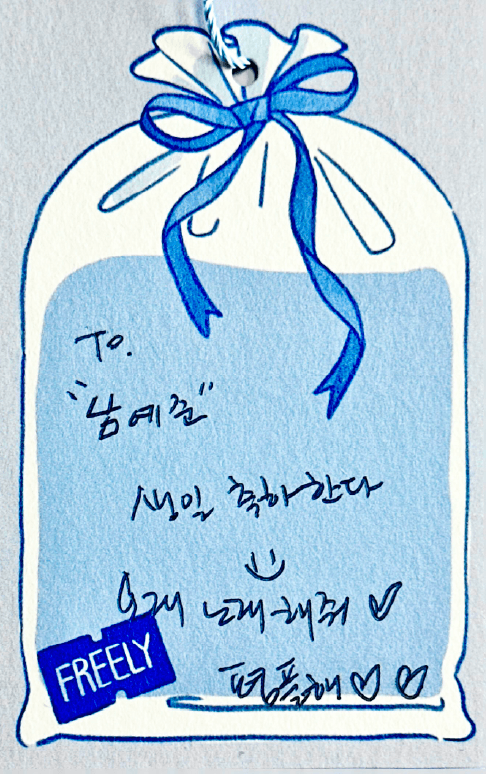 To.
"남예준"
생일 축하한다
오래 노래해줘 ♡
FREELY
평플해 ♡ ♡